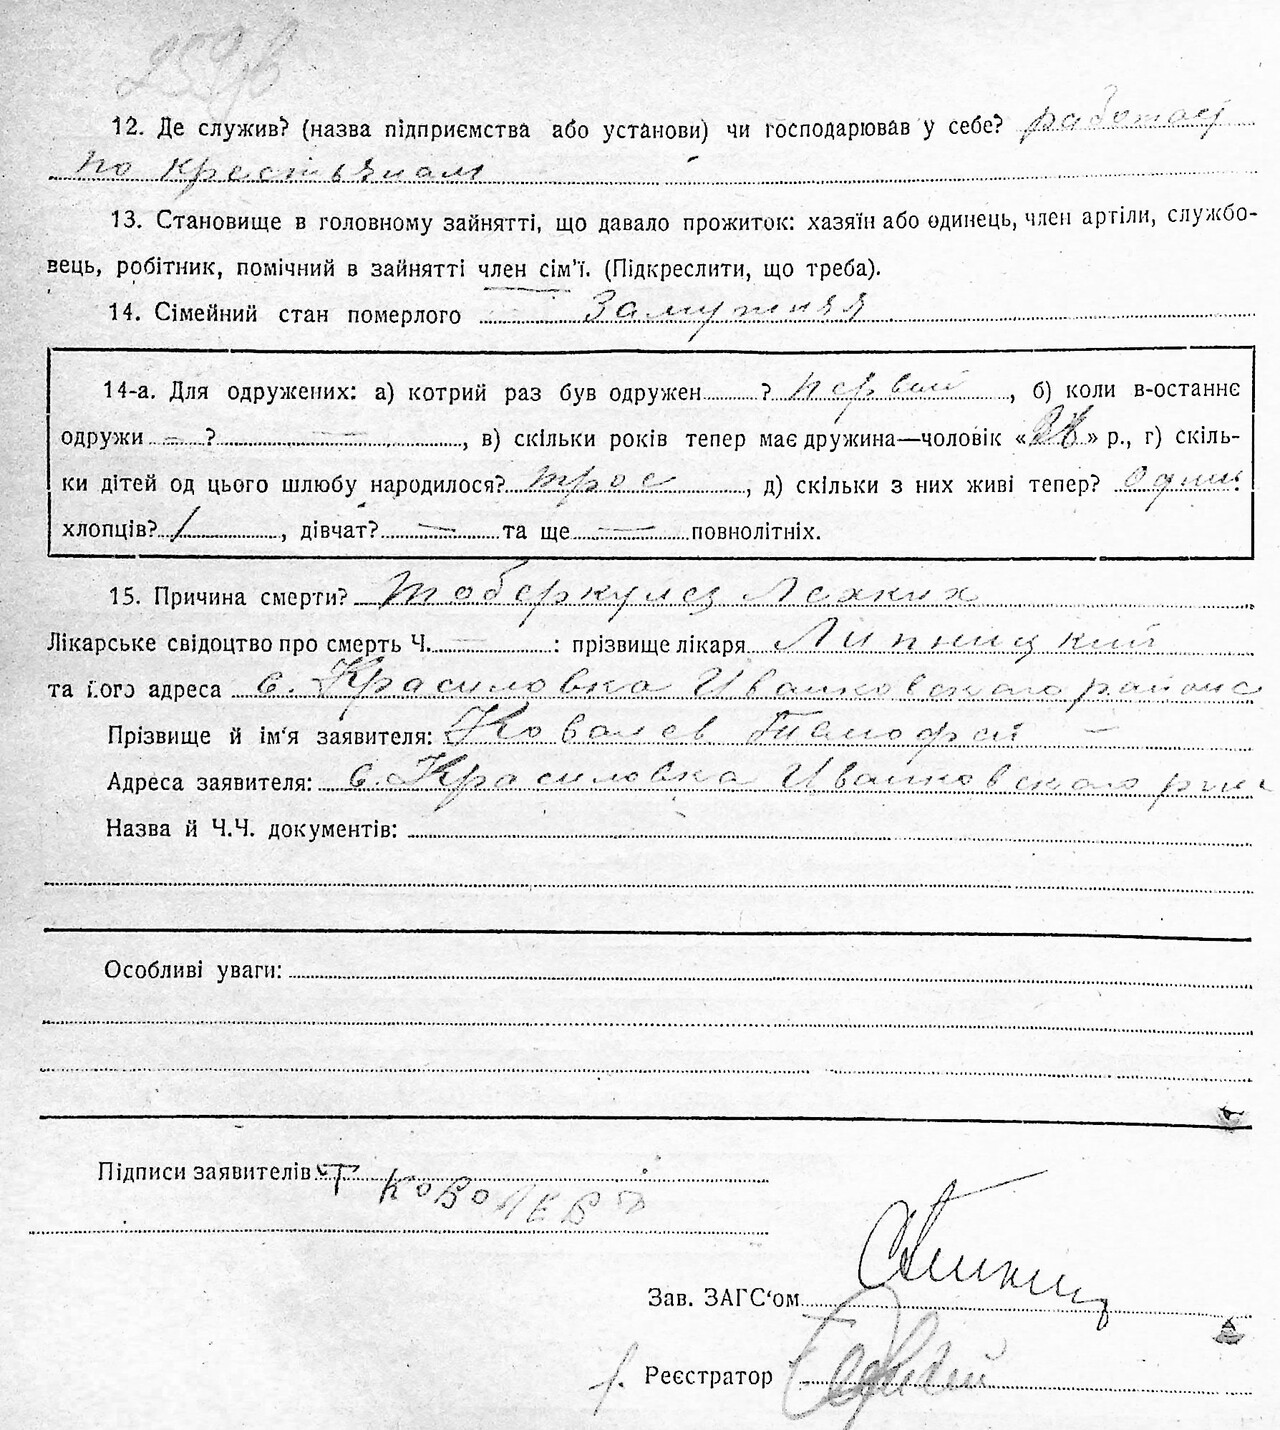 12. Де служив? (назва підприємства або установи) чи господарював у себе? работает
по крестьянам
13. Становище в головному зайнятті, що давало прожиток: хазяїн або одинець, член артіли, службо-
вець, робітник, помічний в зайнятті член сім'ї. (Підкреслити, що треба).
14. Сімейний стан померлого Замужняя
14-а. Для одружених: а) котрий раз був одружен ? первый, б) коли в-останнє
одружи — ? —, в) скільки років тепер має дружина—чоловік « » р., г) скіль-
ки дітей од цього шлюбу народилося? трое, д) скільки з них живі тепер? один
хлопців? 1, дівчат? — та ще — повнолітніх.
15. Причина смерти? тоберкулез Лехких
Лікарське свідоцтво про смерть Ч. — : прізвище лікаря Липницкий
та його адреса с. Красиловка Иванковского района
Прізвище й ім'я заявителя: Ковалев Тимофей —
Адреса заявителя: с. Красиловка Иванковского
Назва й Ч.Ч. документів:
Особливі уваги:
Підписи заявителів Т Коволев
Зав. ЗАГС'ом
Реєстратор